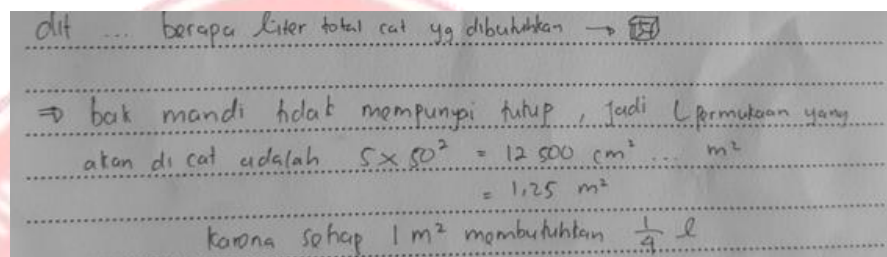 dit ... berapa liter total cat yg dibutuhkan →
⇒ bak mandi tidak mempunyai tutup, jadi L permukaan yang
akan di cat adalah 5 × 50² = 12 500 cm² ... m²
= 1,25 m²
karena setiap 1 m² membutuhkan 1/4 l